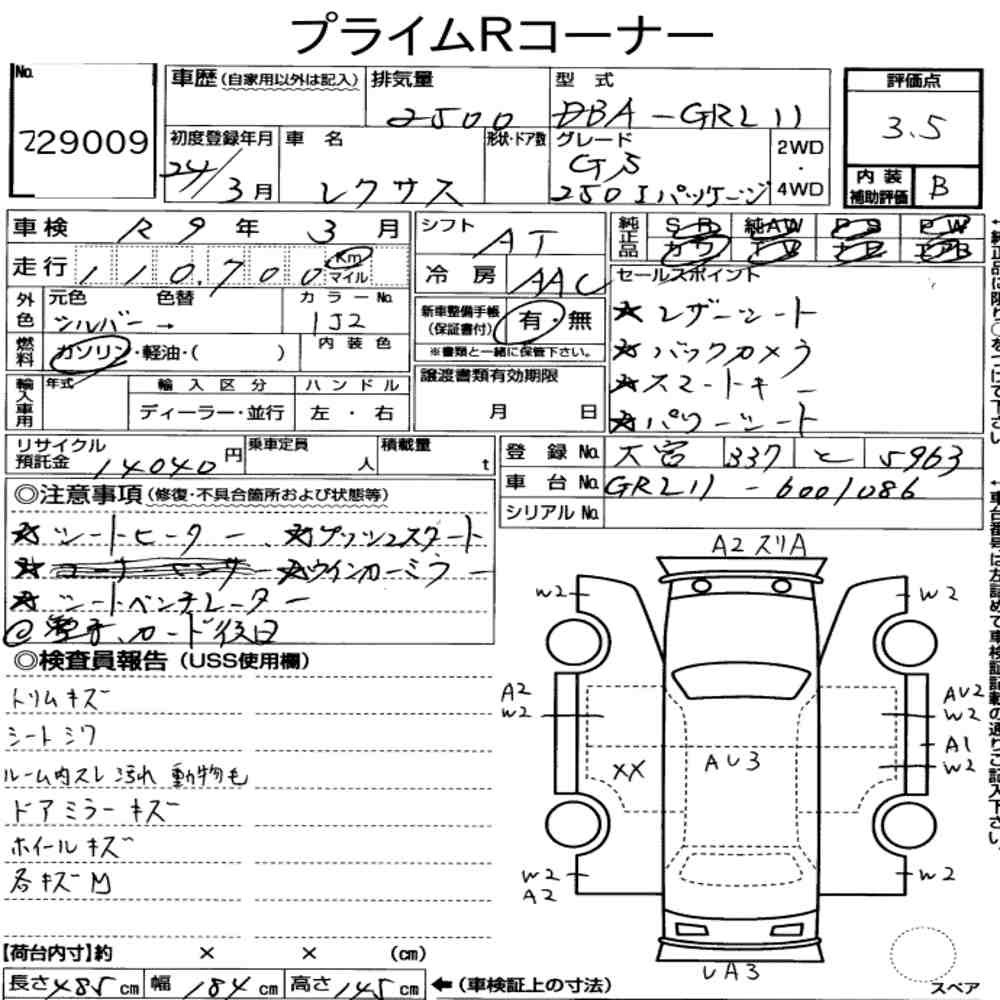 プライムRコーナー
No.
229009
車歴(自家用以外は記入)
排気量
2500
型 式
DBA-GRL11
評価点
3.5
初度登録年月
24/3月
車 名
レクサス
形状・ドア数
グレード
GS
250 Iパッケージ
2WD
・
4WD
内 装
補助評価
B
車検 R9年 3月
シフト
AT
純正品
SR 純AW PS PW
カワ TV ナビ エアB
走行 110,700 Km
マイル
冷 房 AAC
セールスポイント
☆レザーシート
☆バックカメラ
☆スマートキー
☆パワーシート
外色
元色 色替
シルバー→
カラーNo.
1J2
新車整備手帳
(保証書付)
有・無
※書類と一緒に保管下さい。
燃料
ガソリン・軽油・( )
内 装 色
輸入車用
年式
輸 入 区 分
ディーラー・並行
ハ ン ド ル
左 ・ 右
譲渡書類有効期限
月 日
リサイクル
預託金
14040円
乗車定員
人
積載量
t
登 録 No. 大宮 337 と 5963
車 台 No. GRL11-6001086
シリアルNo.
◎注意事項(修復・不具合箇所および状態等)
☆シートヒーター、☆プッシュスタート
☆コーナーセンサー ☆ウインカーミラー
☆シートベンチレーター
@取手、カード後日
◎検査員報告(USS使用欄)
トリムキズ
シートシワ
ルーム内スレ 汚れ 動物毛
ドアミラーキズ
ホイールキズ
各キズM
A2 スリA
W2
W2
A2
W2
AU2
W2
A1
W2
XX
AU3
W2
A2
W2
UA3
スペア
【荷台内寸】約 × × (cm)
長さ485cm 幅184cm 高さ145cm ←(車検証上の寸法)
←純正品に限り○をつけて下さい
←車台番号は左詰めで車検証記載の通りご記入下さい。